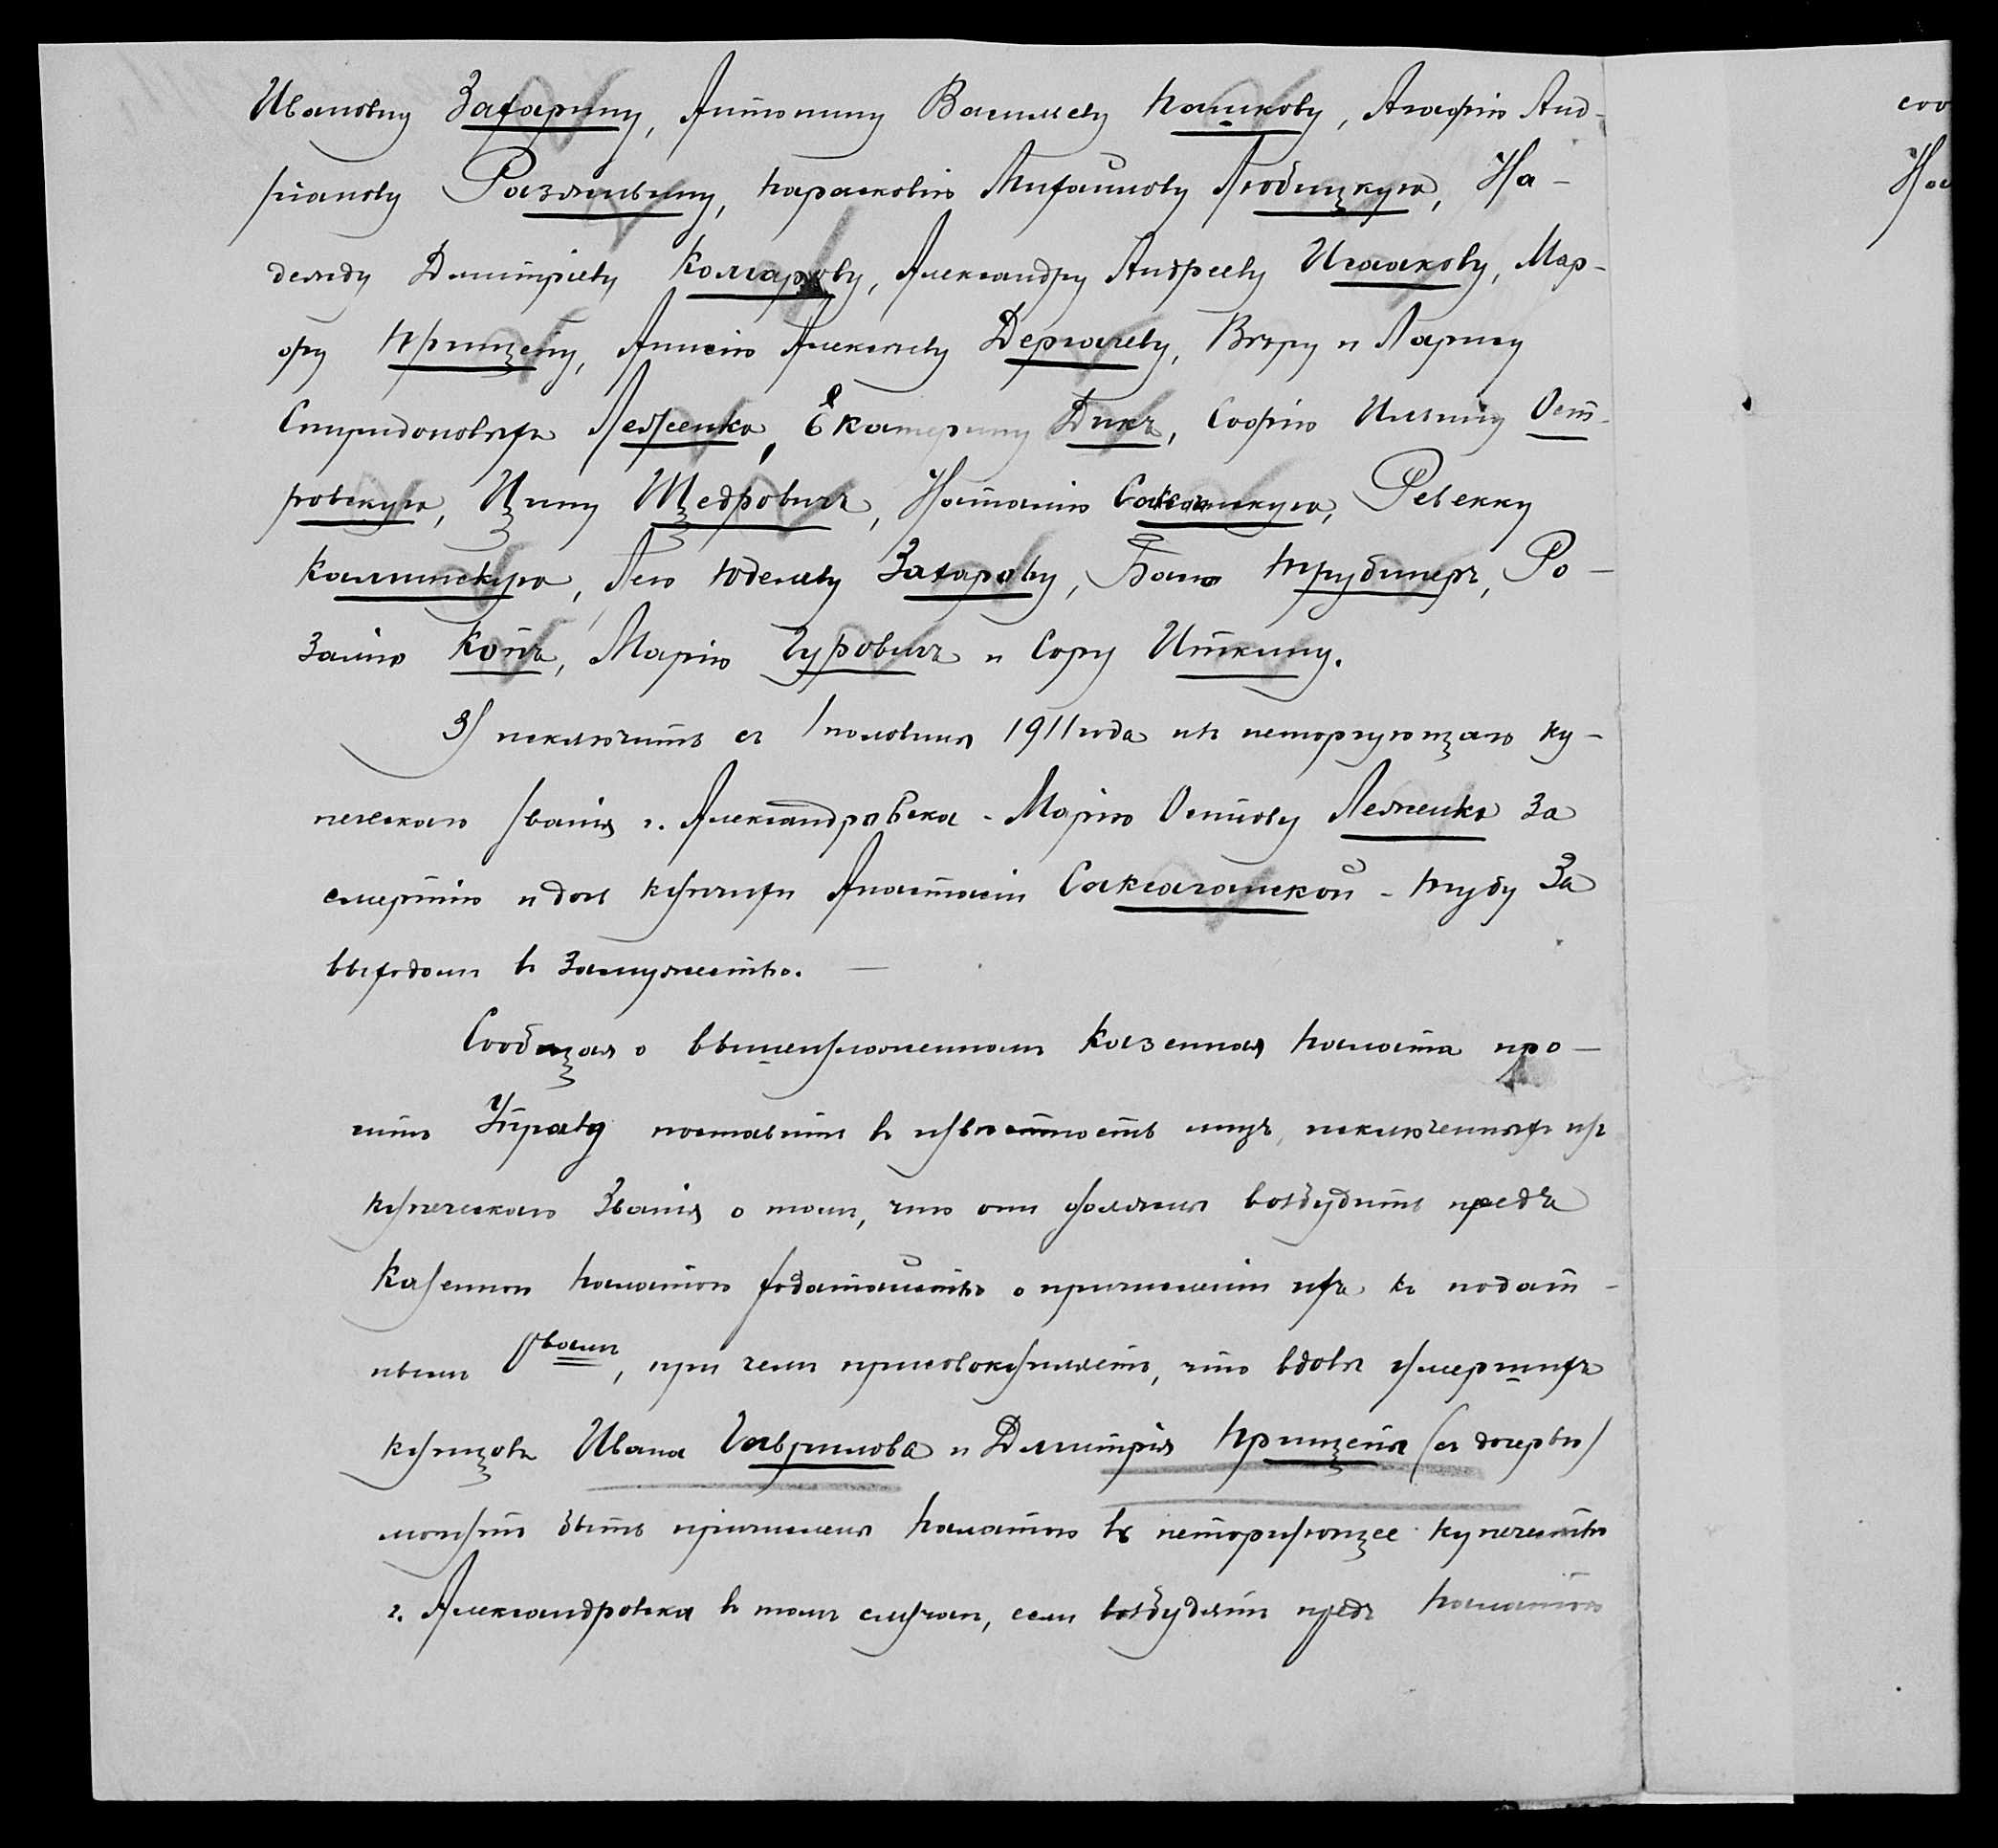 Ивановну Захарину, Антонину Васильеву Пашкову, Агафію Анд-
ріанову Разживину, Парасковію Михайлову Любицкую, На-
дежду Дмитріеву Комарову, Александру Андрееву Исаакову, Мар-
фу Прищепу, Анисію Алексѣеву Дергачеву, Вѣру и Ларису
Спиридоновыхъ Леженко, Екатерину Дикъ, Софію Ильину Ост-
ровскую, Цину Щедровичъ, Наталію Саксаганскую, Ревекку
Калинскую, Лею Юделеву Захарову, Баню Трубинеръ, Ро-
залію Копъ, Марію Гуровичъ и Сору Иткину.
3/ исключить съ 1 половины 1911 года изъ неторгующаго ку-
печескаго званія г. Александровска - Марію Осипову Леженко за
смертію и дочь купчихи Анастасіи Саксаганской - Любу за
выходомъ въ замужество. —
Сообщая о вышеизложенномъ Казенная Палата про-
ситъ Управу поставить въ извѣстность лицъ, исключенныхъ изъ
купеческаго званія о томъ, что они должны возбудить предъ
Казенною Палатою ходатайство о причисленіи ихъ къ подат-
нымъ о-вамъ, при чемъ присовокупляетъ, что вдовы умершихъ
купцовъ Ивана Гаврилова и Дмитрія Прищепы (съ дочерью)
могутъ быть причислены Палатою въ неторгующее купечество
г. Александровска въ томъ случаѣ, если возбудятъ предъ Палатою
соо
На